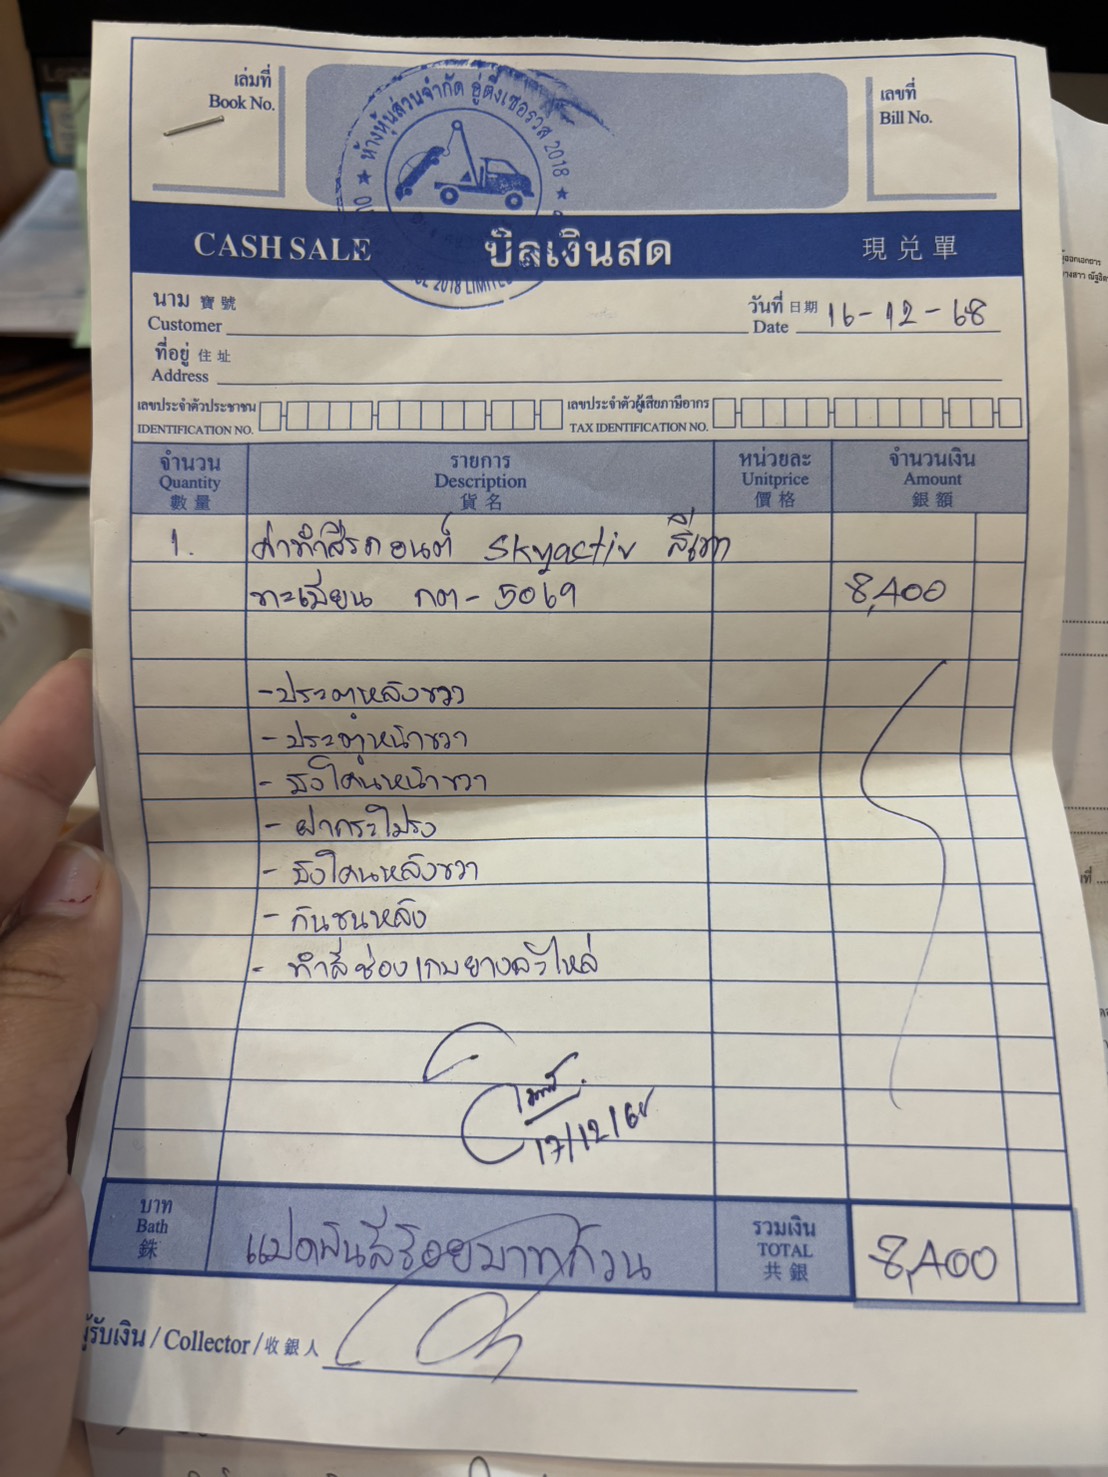 เล่มที่
Book No.
ห้างหุ้นส่วนจำกัด อู่ติ่งเซอรวิส 2018
เลขที่
Bill No.
CASH SALE บิลเงินสด 現兌單
2018 LIMITED
นาม 寶號
Customer
วันที่ 日期
Date 16-12-68
ที่อยู่ 住址
Address
เลขประจำตัวประชาชน
IDENTIFICATION NO.
เลขประจำตัวผู้เสียภาษีอากร
TAX IDENTIFICATION NO.
จำนวน รายการ หน่วยละ จำนวนเงิน
Quantity Description Unitprice Amount
數量 貨名 價格 銀額
1. ค่าทำสีรถยนต์ Skyactiv สีเทา
ทะเบียน กต-5069 8,400
-ประตูหลังขวา
-ประตูหน้าขวา
- บังโคลนหน้าขวา
- ฝากระโปรง
- บังโคลนหลังขวา
- กันชนหลัง
- ทำสีช่องเก็บยางอะไหล่
17/12/68
บาท
Bath
銖
แปดพันสี่ร้อยบาทถ้วน
รวมเงิน
TOTAL
共銀
8,400
ผู้รับเงิน / Collector / 收銀人